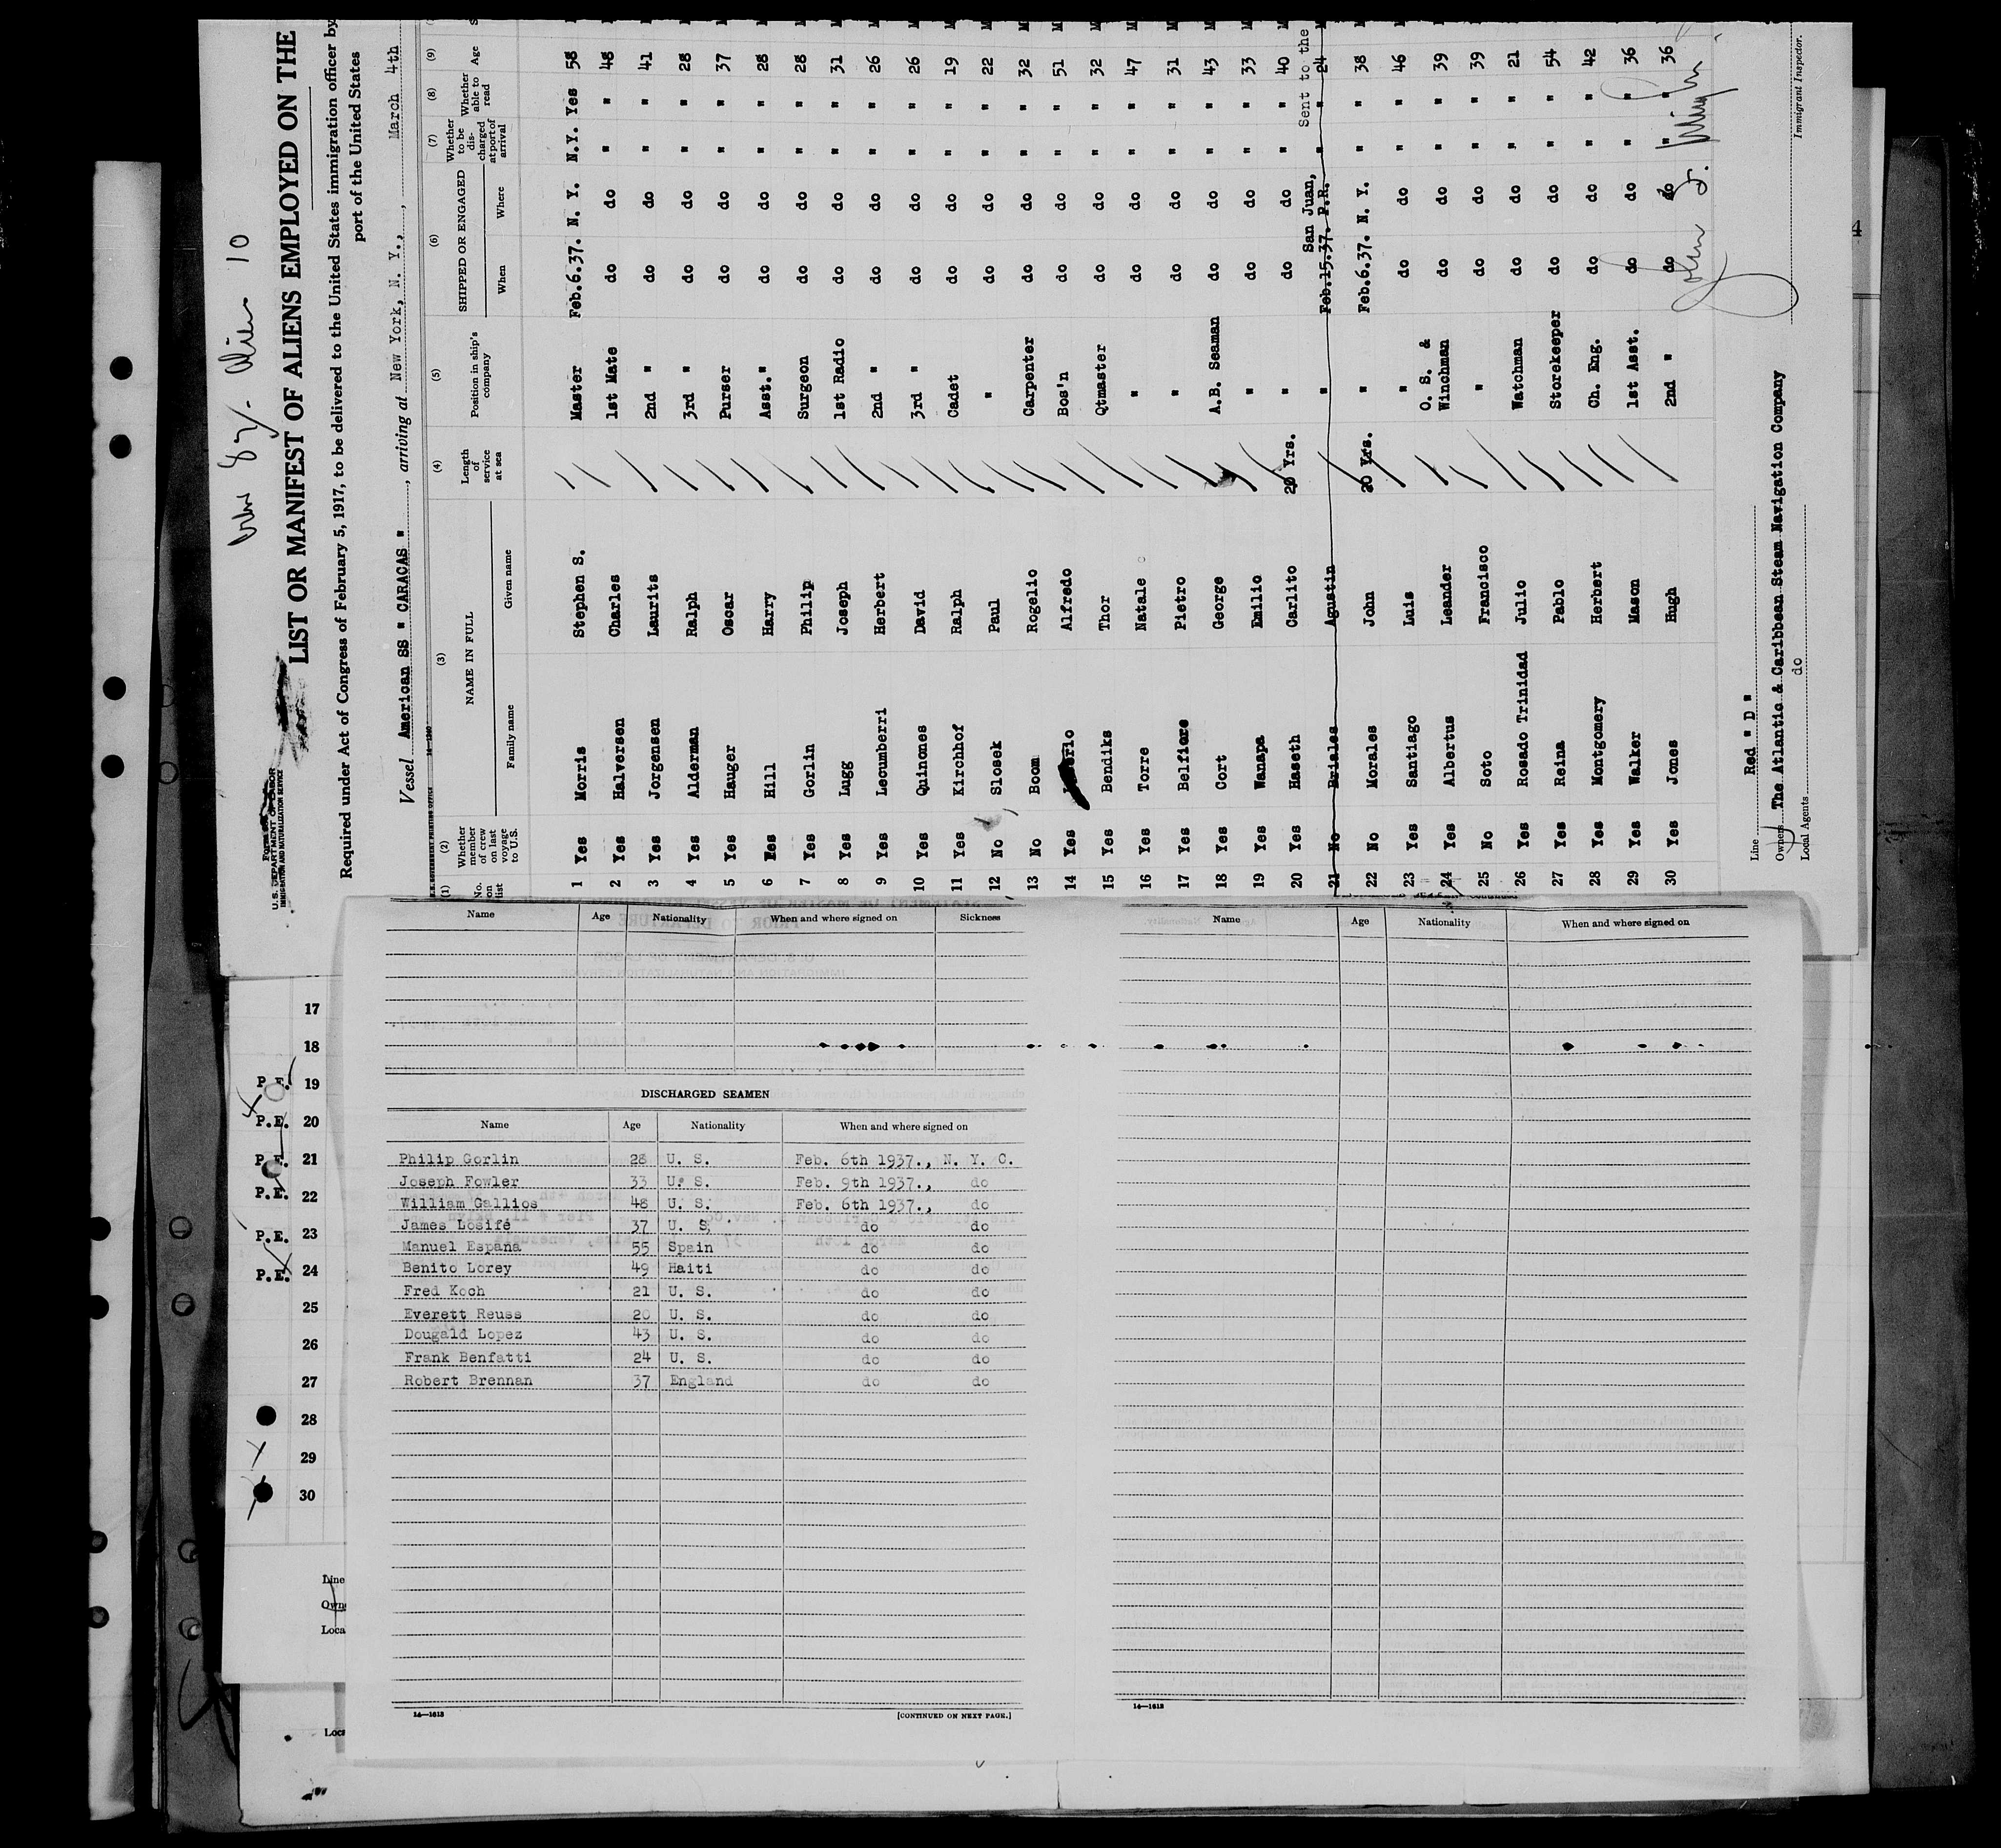 LIST OR MANIFEST OF ALIENS EMPLOYED ON THE
U.S. DEPARTMENT OF LABOR
IMMIGRATION AND NATURALIZATION SERVICE
Required under Act of Congress of February 5, 1917, to be delivered to the United States immigration officer by
port of the United States
Vessel American SS " CARACAS " , arriving at New York, N. Y., , March 4th
(1) (2) (3) (4) (5) (6) (7) (8) (9)
No. on list Whether member of crew on last voyage to U.S. NAME IN FULL Family name Given name Length of service at sea Position in ship's company SHIPPED OR ENGAGED When Where Whether to be discharged at port of arrival Whether able to read Age
1 Yes Morris Stephen S. Master Feb.6.37. N. Y. N.Y. Yes 58
2 Yes Halversen Charles 1st Mate do do " " 48
3 Yes Jorgensen Laurits 2nd " do do " " 41
4 Yes Alderman Ralph 3rd " do do " " 28
5 Yes Hauger Oscar Purser do do " " 37
6 Yes Hill Harry Asst." do do " " 28
7 Yes Gorlin Philip Surgeon do do " " 28
8 Yes Lugg Joseph 1st Radio do do " " 31
9 Yes Lecumberri Herbert 2nd " do do " " 26
10 Yes Quinones David 3rd " do do " " 26
11 Yes Kirchhof Ralph Cadet do do " " 19
12 No Slosek Paul " do do " " 22
13 No Boom Rogelio Carpenter do do " " 32
14 Yes Alfredo Bos'n do do " " 51
15 Yes Bendiks Thor Qtmaster do do " " 32
16 Yes Torre Natale " do do " " 47
17 Yes Belfiore Pietro " do do " " 31
18 Yes Cort George A.B. Seaman do do " " 43
19 Yes Wanapa Emilio " do do " " 33
20 Yes Haseth Carlito 20 Yrs. " do do " " 40
San Juan, Sent to the
21 No Briales Agustin " Feb.15.37. P.R. " " 24
22 No Morales John 20 Yrs. " Feb.6.37. N. Y. " " 38
23 Yes Santiago Luis " do do " " 46
24 Yes Albertus Leander O. S. & Winchman do do " " 39
25 No Soto Francisco " do do " " 39
26 Yes Rosado Trinidad Julio Watchman do do " " 21
27 Yes Reina Pablo Storekeeper do do " " 54
28 Yes Montgomery Herbert Ch. Eng. do do " " 42
29 Yes Walker Mason 1st Asst. do do " " 36
30 Yes Jones Hugh 2nd " do do " " 36
Line Red " D "
Owners The Atlantic & Caribbean Steam Navigation Company
Local Agents do
Immigrant Inspector.
Name Age Nationality When and where signed on Sickness
Name Age Nationality When and where signed on
17
18
P.E. 19
P.E. 20
P.E. 21
P.E. 22
P.E. 23
P.E. 24
25
26
27
28
29
30
Line
Own
Loca
Loca
DISCHARGED SEAMEN
Name Age Nationality When and where signed on
Philip Gorlin 28 U. S. Feb. 6th 1937., N. Y. C.
Joseph Fowler 33 U. S. Feb. 9th 1937., do
William Gallios 48 U. S. Feb. 6th 1937., do
James Losife 37 U. S. do do
Manuel Espana 55 Spain do do
Benito Lorey 49 Haiti do do
Fred Koch 21 U. S. do do
Everett Reuss 20 U. S. do do
Dougald Lopez 43 U. S. do do
Frank Benfatti 24 U. S. do do
Robert Brennan 37 England do do
14—1613 [CONTINUED ON NEXT PAGE.]
14—1613